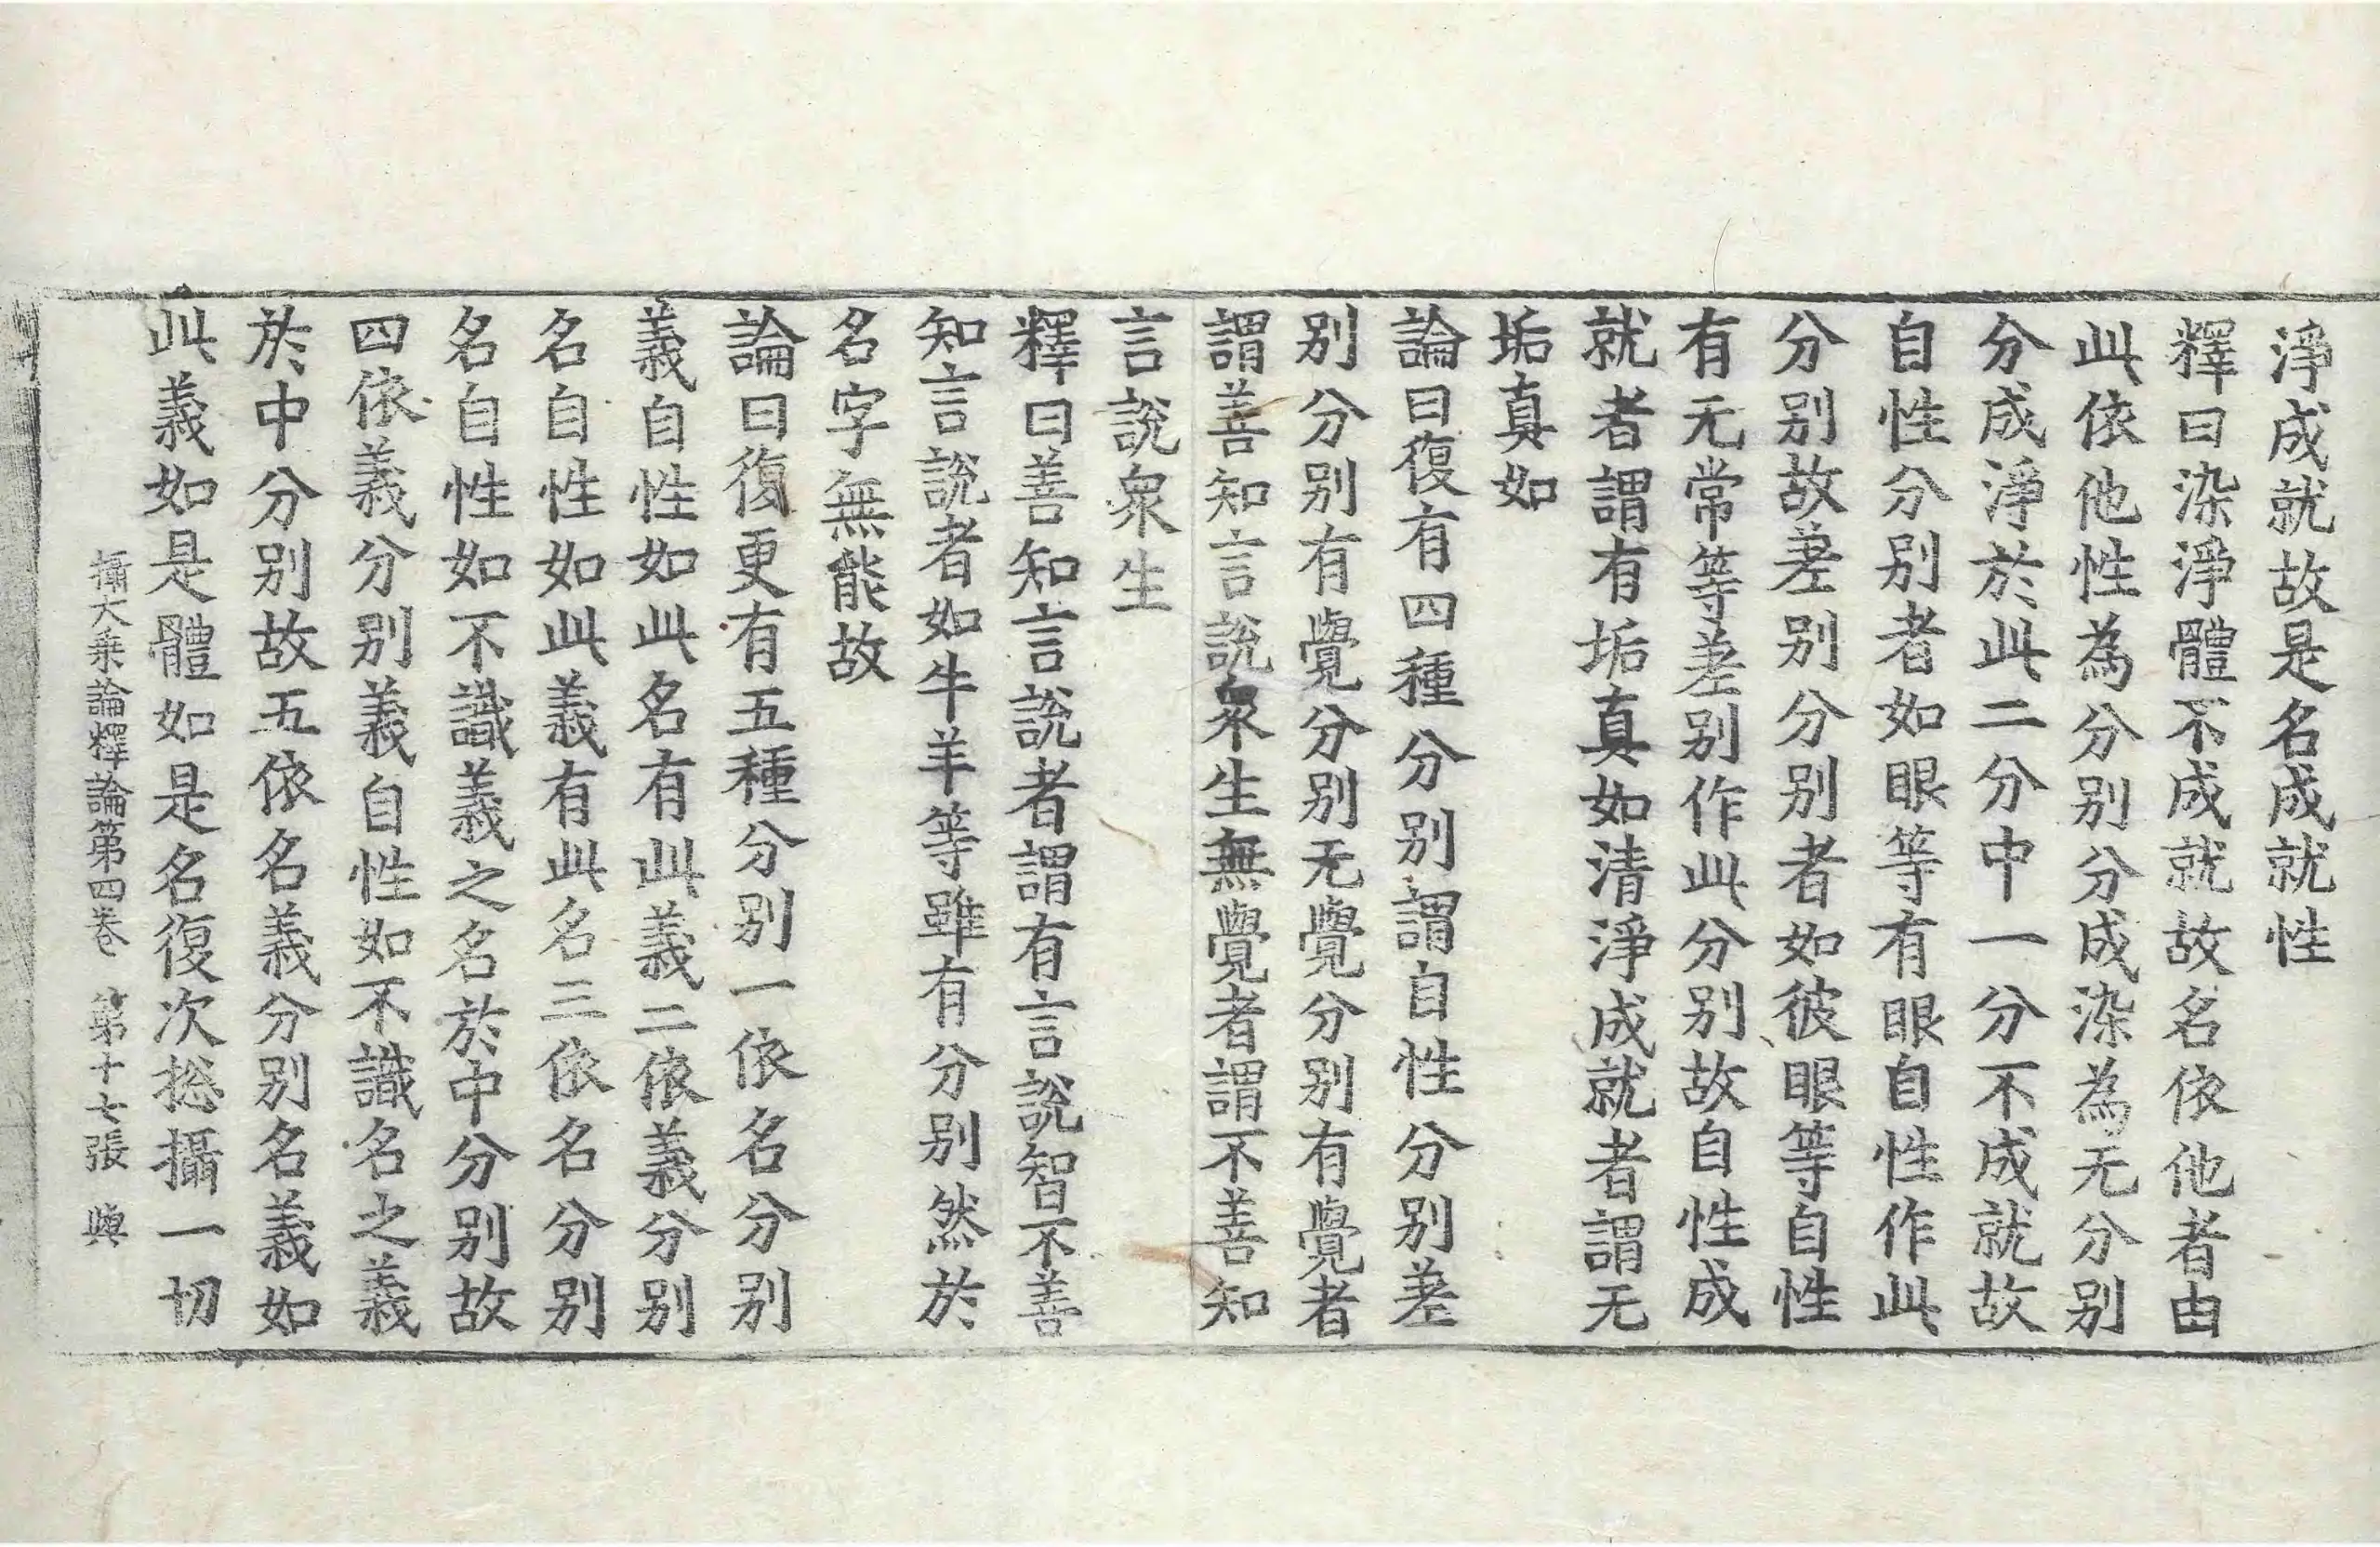 淨成就故是名成就性
釋曰染淨體不成就故名依他者由
此依他性為分别分成染為无分别
分成淨於此二分中一分不成就故
自性分别者如眼等有眼自性作此
分别故差别分别者如彼眼等自性
有无常等差别作此分别故自性成
就者謂有垢真如清淨成就者謂无
垢真如
論曰復有四種分别謂自性分别差
别分别有覺分别无覺分别有覺者
謂善知言說衆生無覺者謂不善知
言說衆生
釋曰善知言說者謂有言說智不善
知言說者如牛羊等雖有分别然於
名字無能故
論曰復更有五種分别一依名分别
義自性如此名有此義二依義分别
名自性如此義有此名三依名分别
名自性如不識義之名於中分别故
四依義分别義自性如不識名之義
於中分别故五依名義分别名義如
此義如是體如是名復次揔攝一切
攝大乘論釋論第四卷 第十七張 與